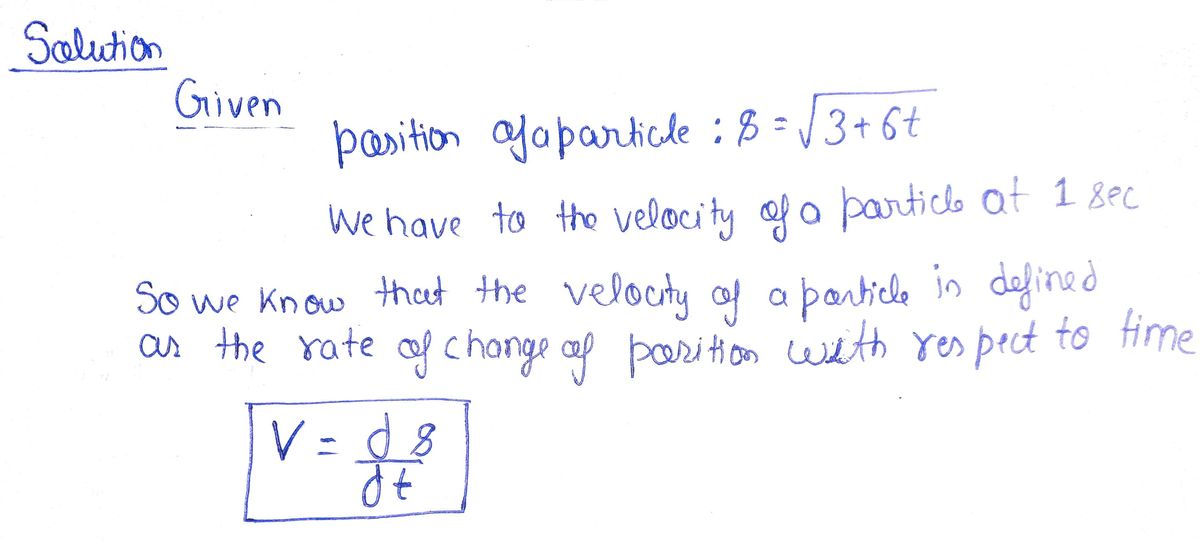 Solution
Given
position of a particle : s = √3+6t
We have to the velocity of a particle at 1 sec
So we know that the velocity of a particle is defined
as the rate of change of position with respect to time
V = ds/dt